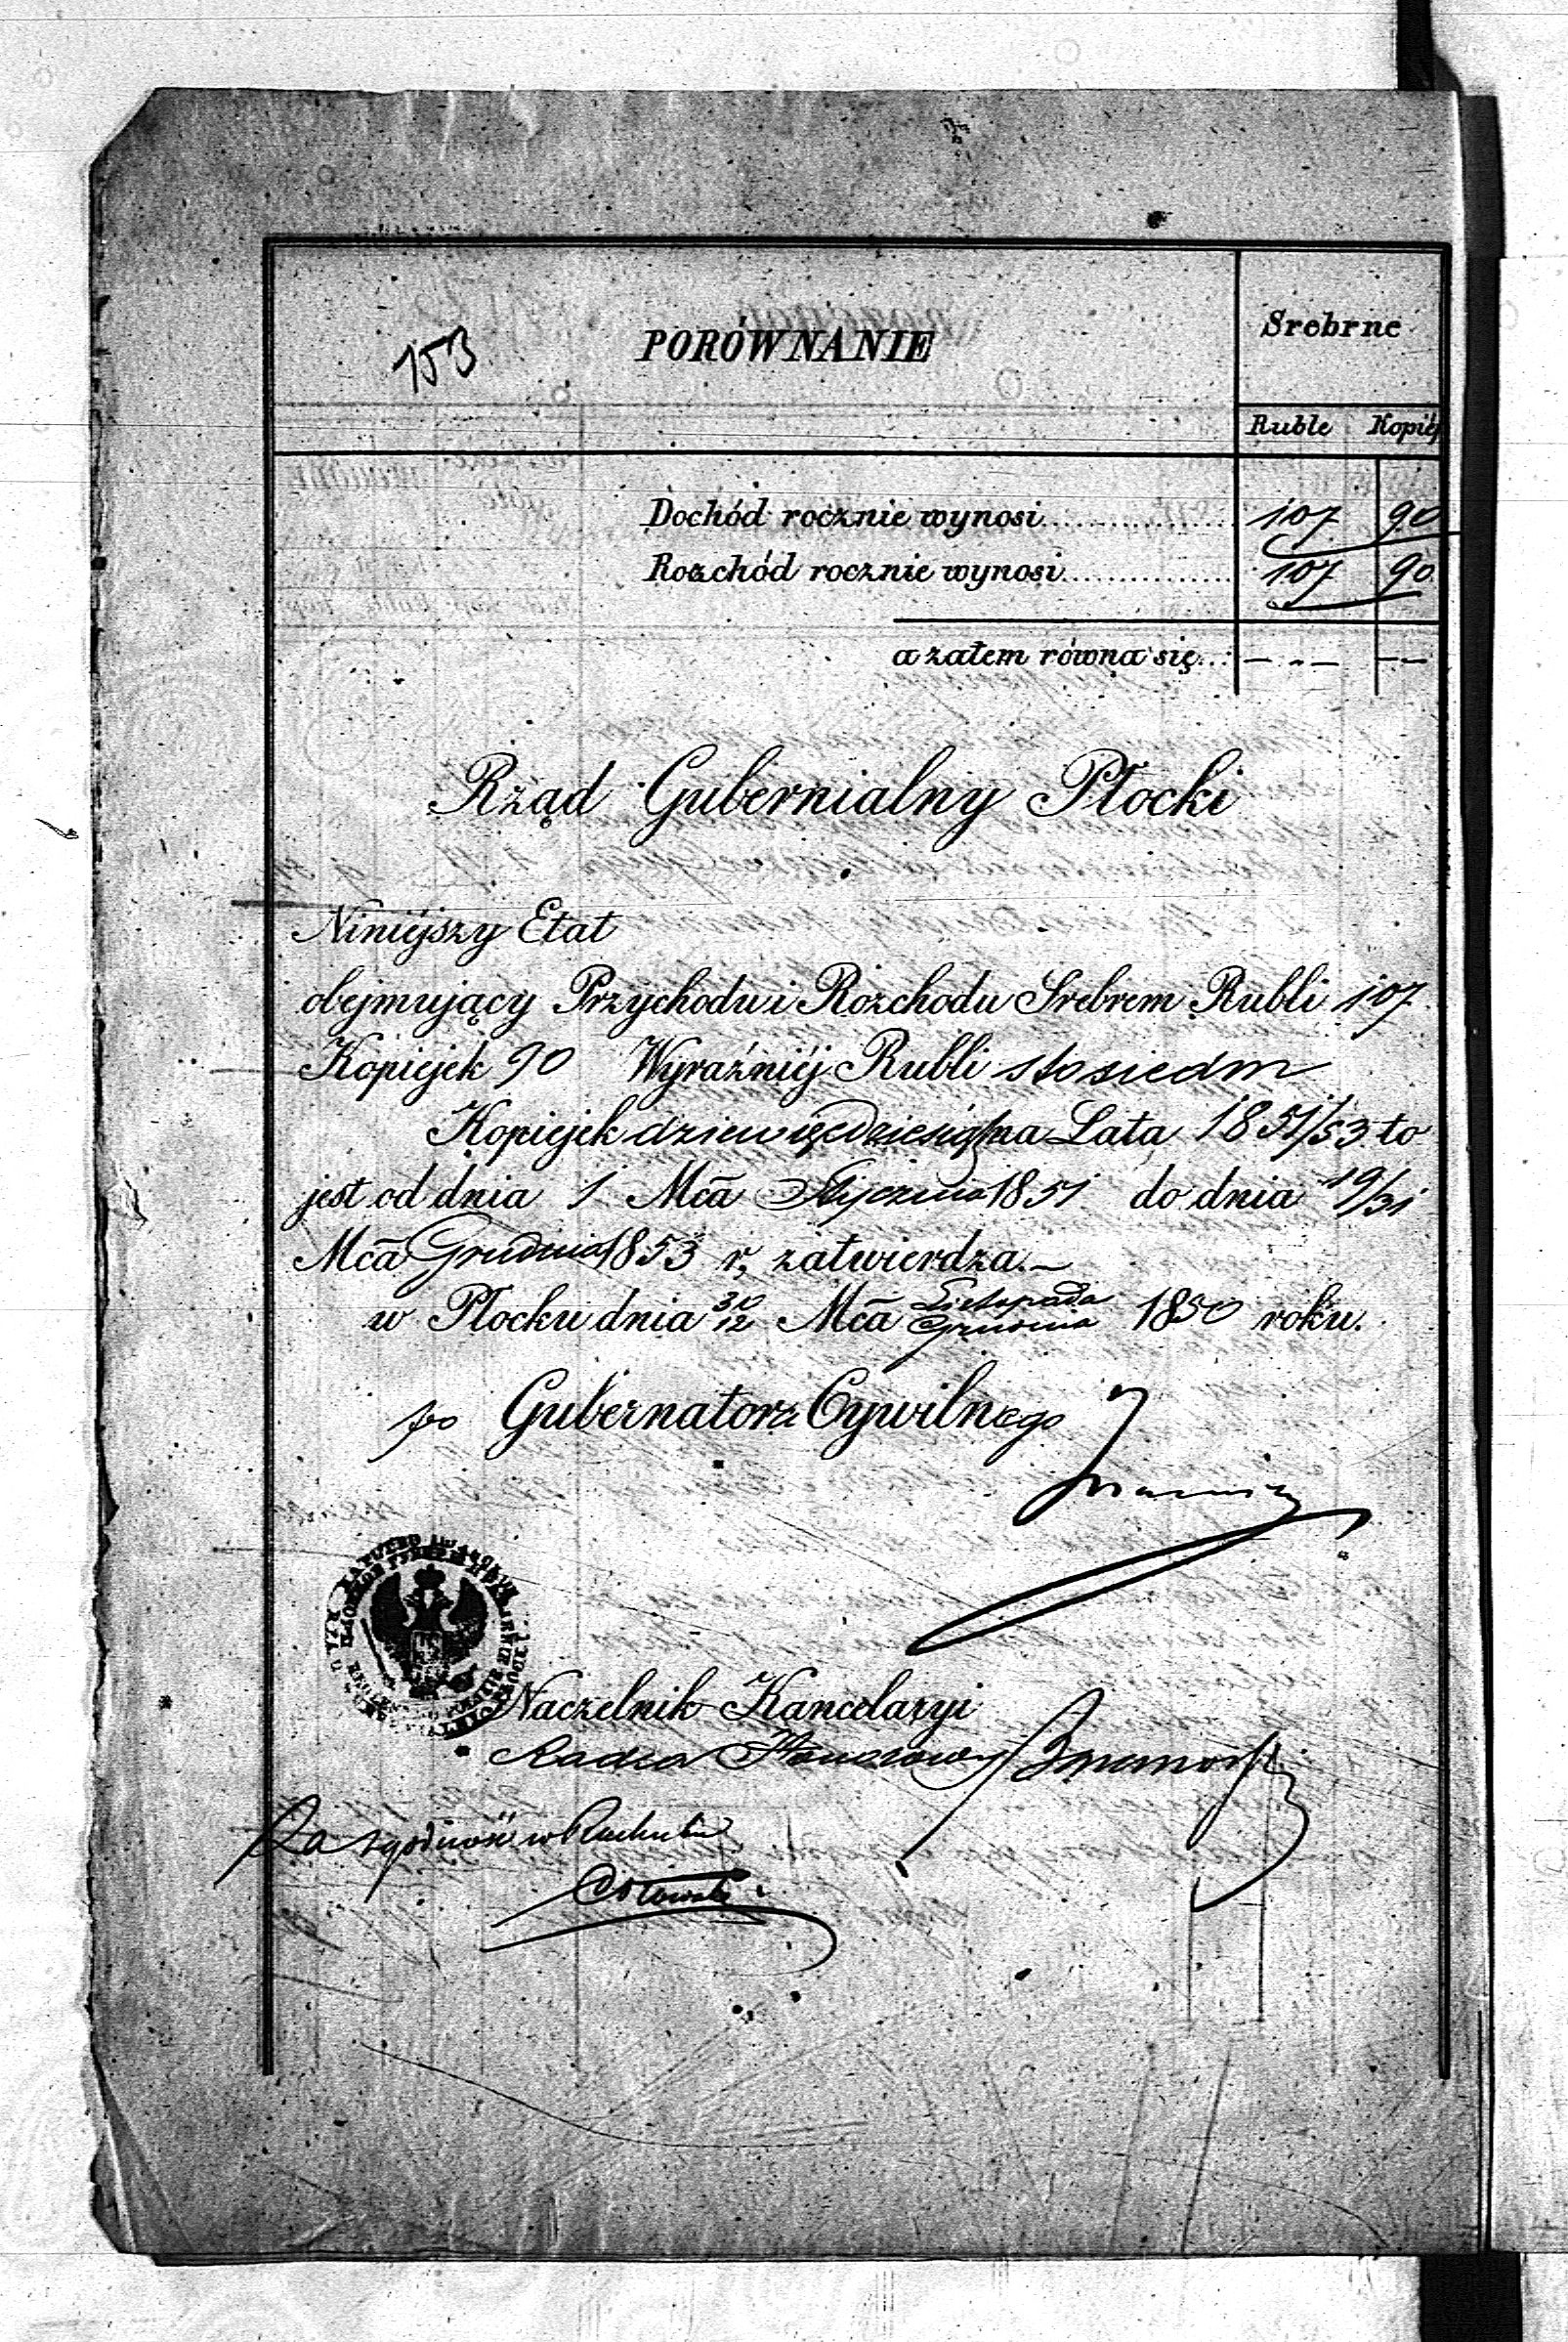 153
PORÓWNANIE
Srebrne
Ruble Kopiéj
Dochód rocznie wynosi 107 90
Rozchód rocznie wynosi 107 90
a zatem równa się — - — — —
Rząd Gubernialny Płocki
Niniéjszy Etat
obejmujący Przychodu i Rozchodu Srebrem Rubli 107
Kopiejek 90 Wyraźniéj Rubli sto siedm
Kopiejek dziewięćdziesiąt na Lata 1851/53 to
jest od dnia 1 Mca Stycznia 1851 do dnia 19/31
Mca Grudnia 1853 r, zatwierdza.—
w Płocku dnia 30/12 Mca Listopada/Grudnia 1850 roku.
Gubernatora Cywilnego
Naczelnik Kancelaryi
Radca Honorowy
Za zgodność w Rachubie